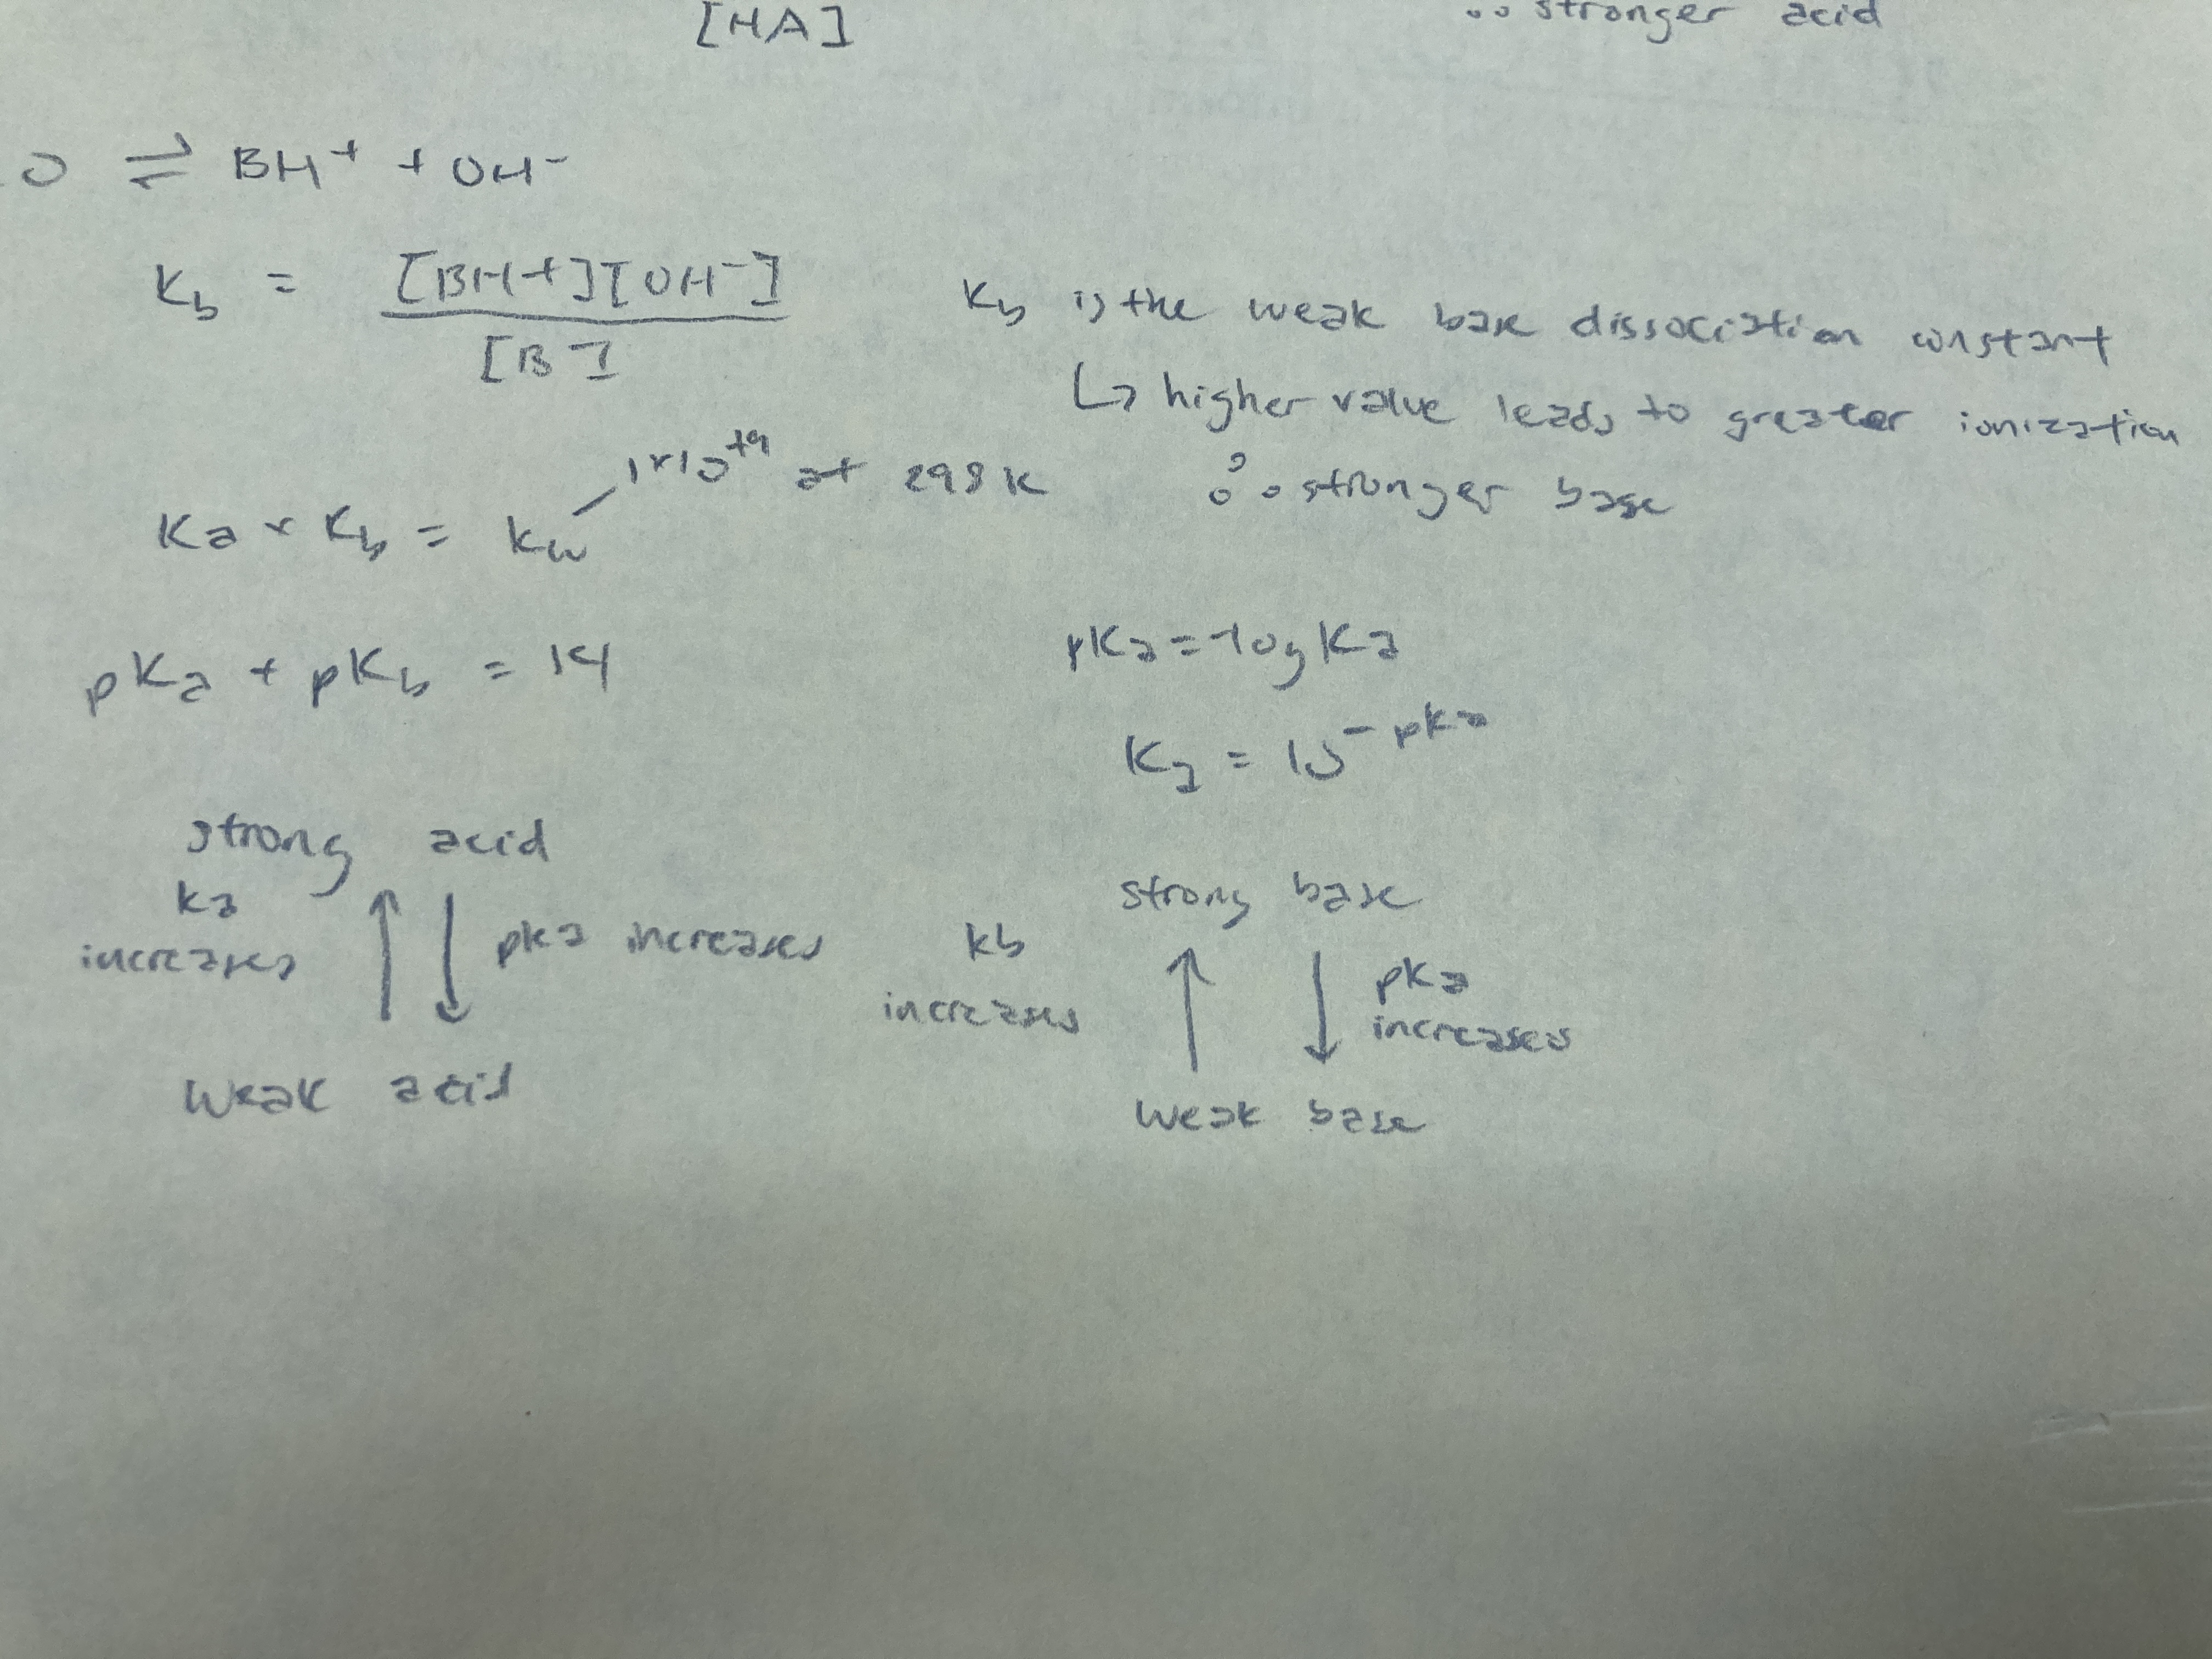 [HA]
∴ stronger acid
O ⇌ BH⁺ + OH⁻
K_b = [BH+][OH⁻]
[B]
K_b is the weak base dissociation constant
↳ higher value leads to greater ionization
∴ stronger base
Ka × K_b = kw
1×10 at 298 K
pKa + pK_b = 14
pKa = -log Ka
Ka = 10^-pka
strong acid
ka
increases
↑ ↓ pka increases
weak acid
strong base
kb
increases
↑ ↓ pKa
increases
weak base